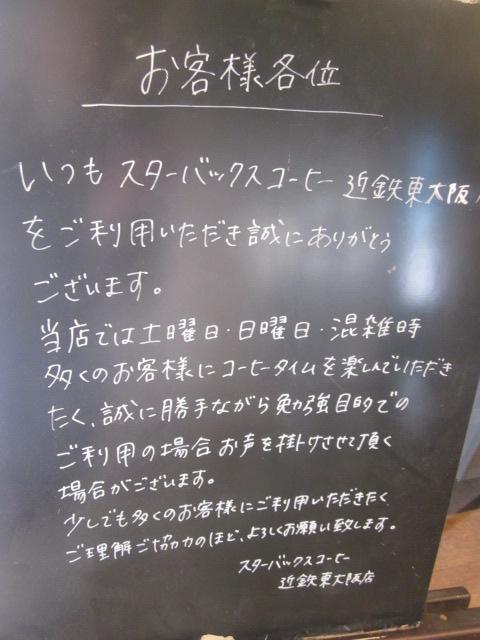 お客様各位
いつもスターバックスコーヒー 近鉄東大阪
をご利用いただき誠にありがとう
ございます。
当店では土曜日・日曜日・混雑時
多くのお客様にコーヒータイムを楽しんでいただき
たく、誠に勝手ながら勉強目的での
ご利用の場合お声を掛けさせて頂く
場合がございます。
少しでも多くのお客様にご利用いただきたく
ご理解ご協力のほど、よろしくお願い致します。
スターバックスコーヒー
近鉄東大阪店